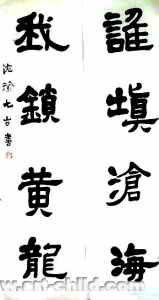 誰塡滄海
我鎖黄龍
沈渝七岁書
www.art-child.com